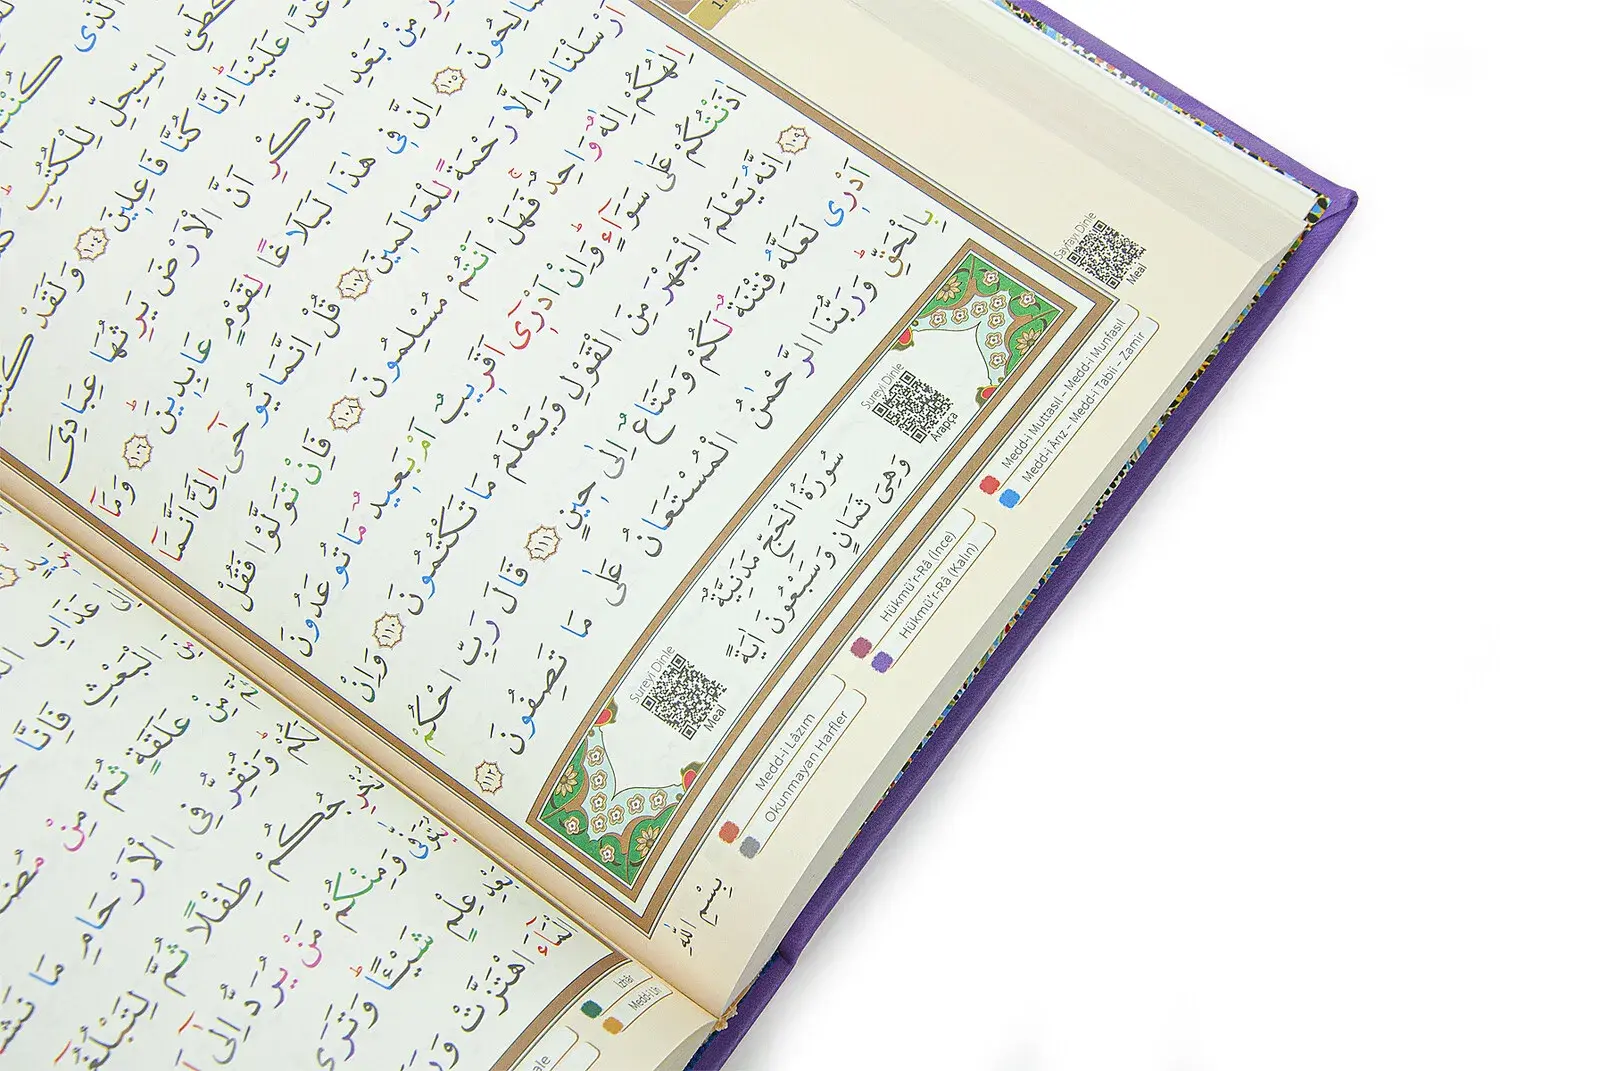 الَّذٖى كُنْتُمْ
كَطَىِّ السِّجِلِّ لِلْكُتُبِ
عَلَيْنَا اِنَّا كُنَّا فَاعِلِينَ ١٠٤ وَلَقَدْ
مِنْ بَعْدِ الذِّكْرِ اَنَّ الْاَرْضَ يَرِثُهَا عِبَادِىَ
١٠٥ اِنَّ فِى هٰذَا لَبَلَاغًا لِقَوْمٍ عَابِدِينَ ١٠٦ وَمَٓا
اَرْسَلْنَاكَ اِلَّا رَحْمَةً لِلْعَالَمِينَ ١٠٧ قُلْ اِنَّمَا يُوحٰٓى اِلَىَّ اَنَّمَٓا
اِلٰهُكُمْ اِلٰهٌ وَاحِدٌ فَهَلْ اَنْتُمْ مُسْلِمُونَ ١٠٨ فَاِنْ تَوَلَّوْا فَقُلْ
اٰذَنْتُكُمْ عَلٰى سَوَٓاءٍ وَاِنْ اَدْرِٓى اَقَرِيبٌ اَمْ بَعِيدٌ مَا تُوعَدُونَ
١٠٩ اِنَّهُ يَعْلَمُ الْجَهْرَ مِنَ الْقَوْلِ وَيَعْلَمُ مَا تَكْتُمُونَ ١١٠ وَاِنْ
اَدْرِى لَعَلَّهُ فِتْنَةٌ لَكُمْ وَمَتَاعٌ اِلٰى حِينٍ ١١١ قَالَ رَبِّ احْكُمْ
بِالْحَقِّ وَرَبُّنَا الرَّحْمٰنُ الْمُسْتَعَانُ عَلٰى مَا تَصِفُونَ ١١٢
Sureyi Dinle
Arapça
سُورَةُ الْحَجِّ مَدَنِيَّةٌ
وَهِىَ ثَمَانٍ وَسَبْعُونَ اٰيَةً
Sureyi Dinle
Meal
Sayfayı Dinle
Meal
Medd-i Muttasıl – Medd-i Munfasıl
Medd-i Ânz – Medd-i Tabîî – Zamir
Hükmü'r-Râ (İnce)
Hükmü'r-Râ (Kalın)
Medd-i Lâzım
Okunmayan Harfler
بِسْمِ اللّٰهِ
الْبَعْثِ فَاِنَّا
مِنْ عَلَقَةٍ ثُمَّ مِنْ
وَنُقِرُّ فِى الْاَرْحَامِ مَا
طِفْلًا ثُمَّ لِتَبْلُغُٓوا
وَمِنْكُمْ مَنْ يُرَدُّ اِلٰٓى
بَعْدِ عِلْمٍ شَيْـًٔا وَتَرَى
الْمَٓاءَ اهْتَزَّتْ
İzhâr
Medd-i Lîn